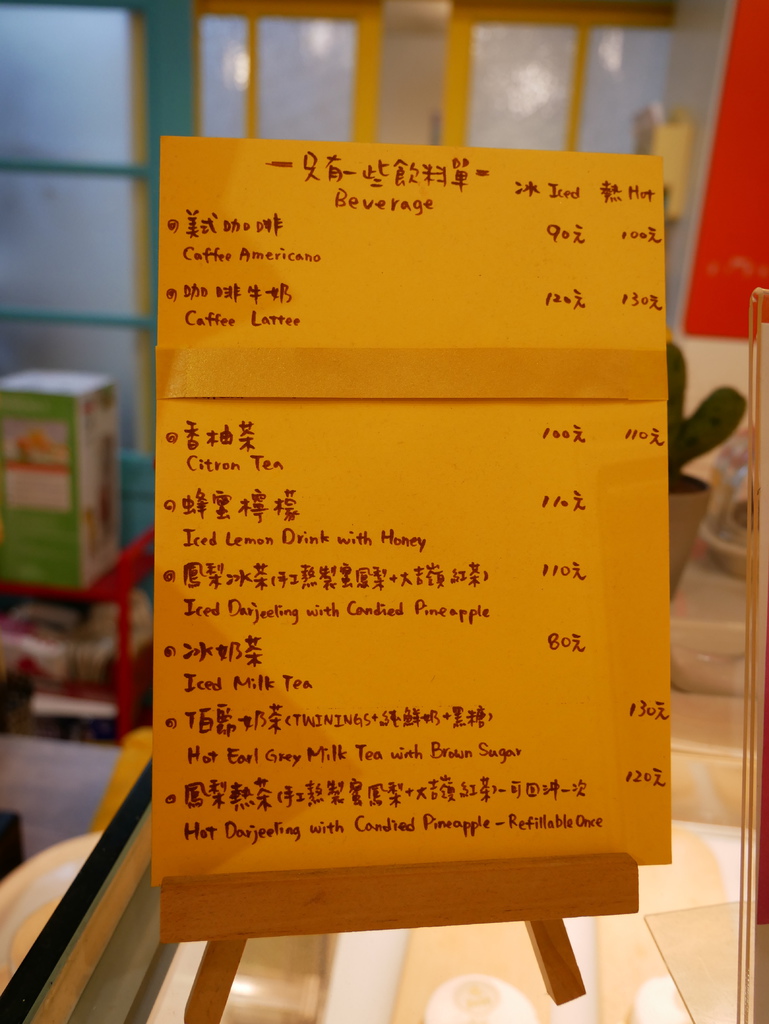 一只有一些飲料單一
Beverage
冰 Iced 熱 Hot
美式咖啡 90元 100元
Caffee Americano
咖啡牛奶 120元 130元
Caffee Lattee
香柚茶 100元 110元
Citron Tea
蜂蜜檸檬 110元
Iced Lemon Drink with Honey
鳳梨冰茶(手工熬製蜜鳳梨+大吉嶺紅茶) 110元
Iced Darjeeling with Candied Pineapple
冰奶茶 80元
Iced Milk Tea
伯爵奶茶(TWININGS+純鮮奶+黑糖) 130元
Hot Earl Grey Milk Tea with Brown Sugar
鳳梨熱茶(手工熬製蜜鳳梨+大吉嶺紅茶)-可回沖一次 120元
Hot Darjeeling with Candied Pineapple - Refillable Once